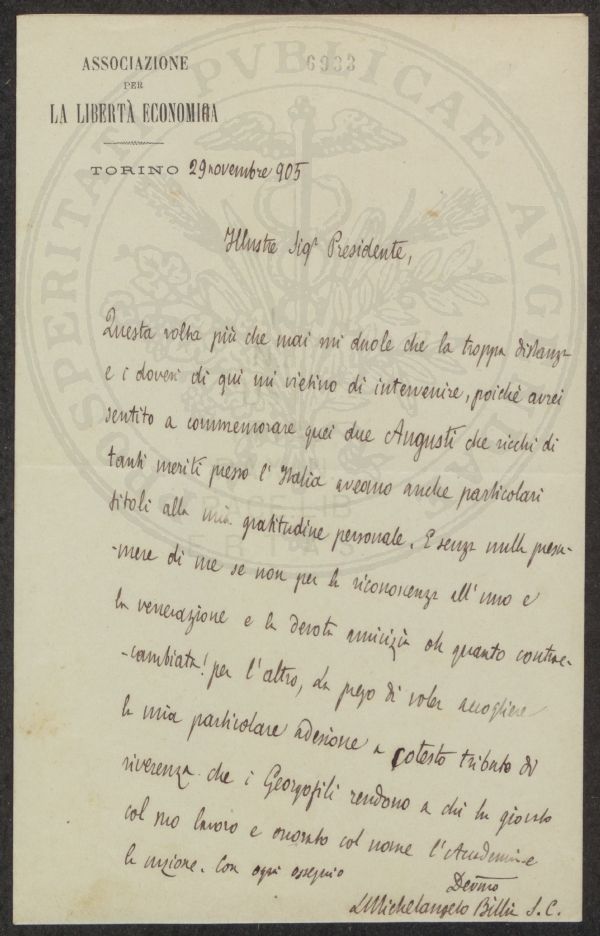 ASSOCIAZIONE
PER
LA LIBERTÀ ECONOMICA
6933
TORINO 29 novembre 905
Illustre Sigr Presidente,
Questa volta più che mai mi duole che la troppa distanza
e i doveri di qui mi vietino di intervenire, poichè avrei
sentito a commemorare quei due Augusti che ricchi di
tanti meriti presso l'Italia aveano anche particolari
titoli alla mia gratitudine personale. E senza nulla presu-
-mere di me se non per la riconoscenza all'uno e
la venerazione e la devota amicizia oh quanto contrac-
-cambiata! per l'altro, La prego di voler accogliere
la mia particolare adesione a cotesto tributo di
riverenza che i Georgofili rendono a chi ha giovato
col suo lavoro e onorato col nome l'Accademia e
la nazione. Con ogni ossequio
Devmo
Michelangelo Billia S.C.
PROSPERITATI PVBLICAE AVGENDAE